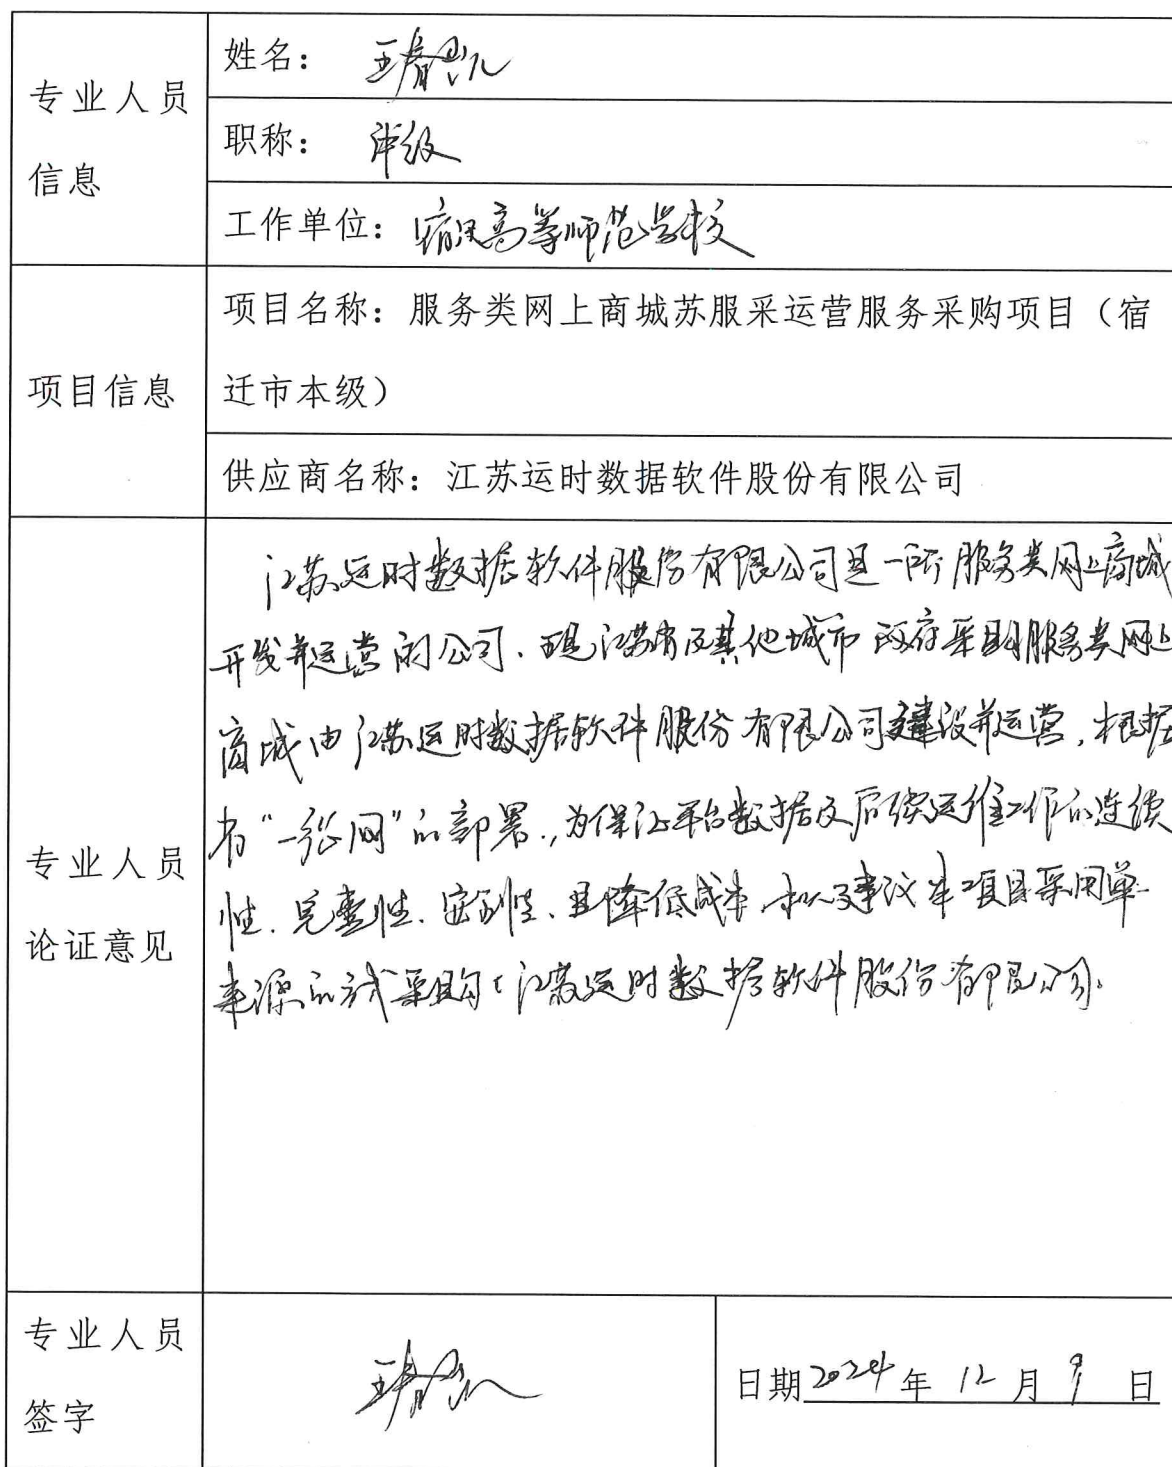 专业人员
信息
姓名：
职称：
工作单位：宿迁高等师范学校
项目信息
项目名称：服务类网上商城苏服采运营服务采购项目（宿
迁市本级）
供应商名称：江苏运时数据软件股份有限公司
专业人员
论证意见
江苏运时数据软件股份有限公司是一所服务类网上商城
开发并运营的公司、现江苏省及其他城市政府采购服务类网上
商城由江苏运时数据软件股份有限公司建设并运营，根据
省“一张网”的部署，为保证平台数据及后续运维工作的连续
性、完整性、安全性、且降低成本，建议本项目采用单一
来源的方式采购江苏运时数据软件股份有限公司.
专业人员
签字
日期2024年12月9日